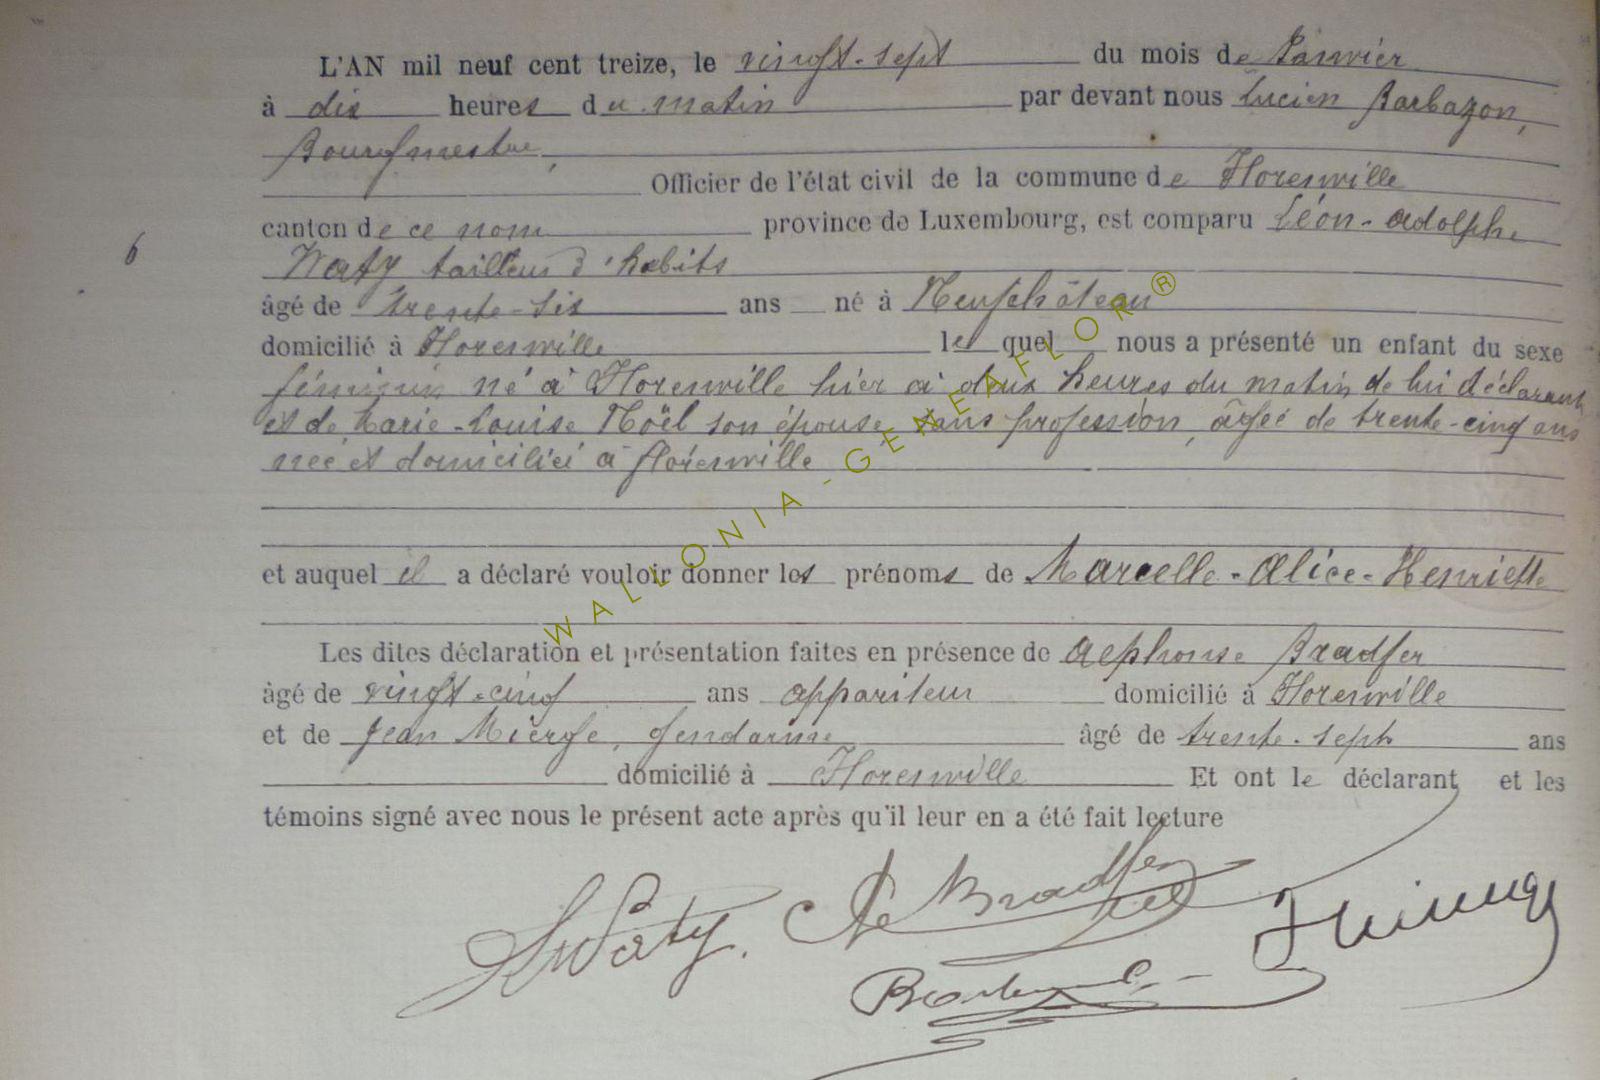 L'AN mil neuf cent treize, le vingt-sept du mois de Janvier
à dix heures du matin par devant nous Lucien Barbazon,
Bourgmestre,
Officier de l'état civil de la commune de Florenville
canton de ce nom province de Luxembourg, est comparu Léon-Adolphe
6
Waty tailleur d'habits
âgé de trente-six ans né à Neufchâteau
domicilié à Florenville lequel nous a présenté un enfant du sexe
féminin né à Florenville hier à deux heures du matin de lui déclarant
et de Marie-Louise Noël son épouse, sans profession, âgée de trente-cinq ans
née et domiciliée à Florenville
et auquel il a déclaré vouloir donner les prénoms de Marcelle-Alice-Henriette
Les dites déclaration et présentation faites en présence de Alphonse Bradfer
âgé de vingt-cinq ans appariteur domicilié à Florenville
et de Jean Mierge, gendarme âgé de trente-sept ans
domicilié à Florenville Et ont le déclarant et les
témoins signé avec nous le présent acte après qu'il leur en a été fait lecture
Waty. Bradfer
WALLONIA-GENEAFLOR®